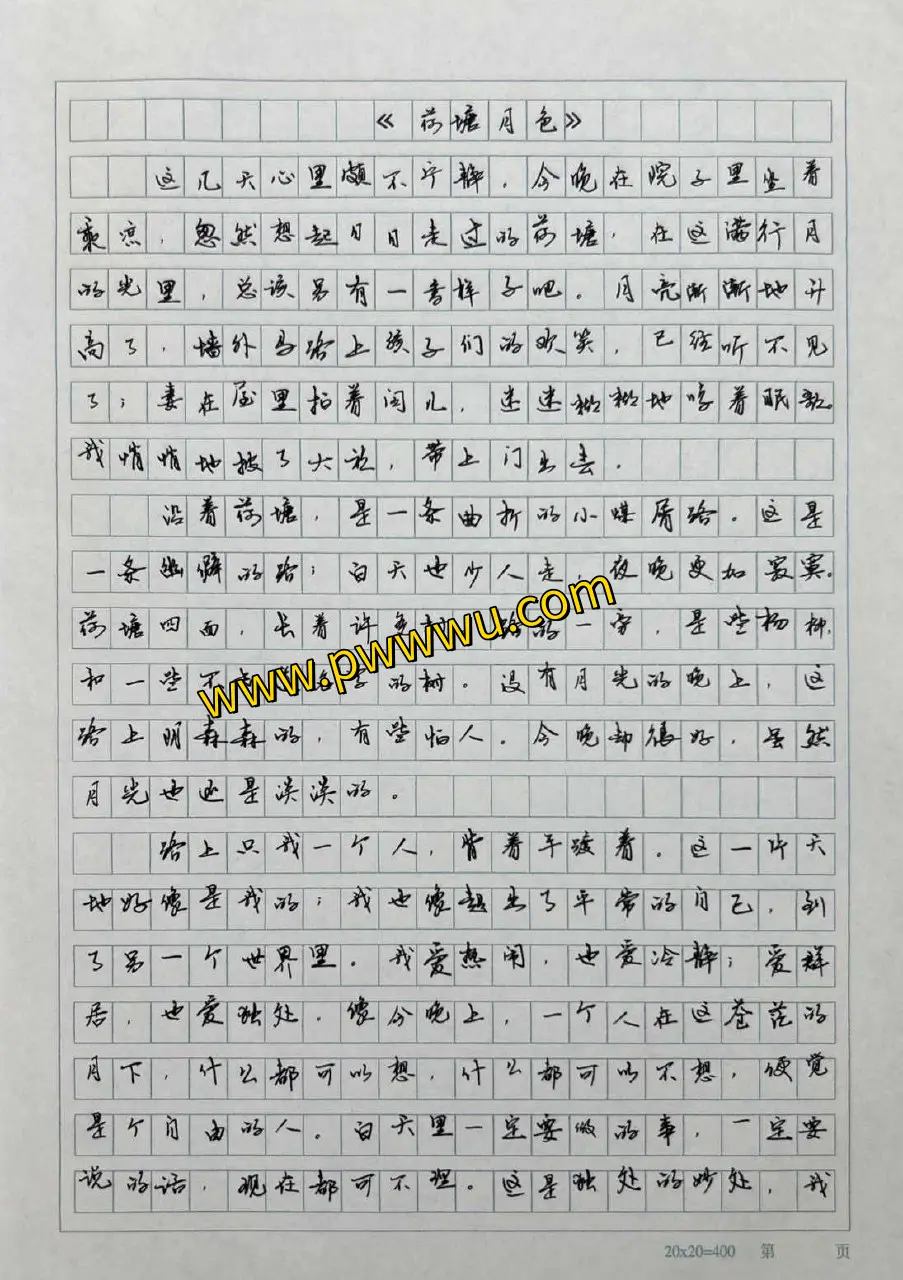 《荷塘月色》
这几天心里颇不宁静，今晚在院子里坐着
乘凉，忽然想起日日走过的荷塘，在这满行月
的光里，总该另有一番样子吧。月亮渐渐地升
高了，墙外马路上孩子们的欢笑，已经听不见
了；妻在屋里拍着闰儿，迷迷糊糊地哼着眠歌。
我悄悄地披了大衫，带上门出去．
沿着荷塘，是一条曲折的小煤屑路。这是
一条幽僻的路；白天也少人走，夜晚更加寂寞．
荷塘四面，长着许多树 路的一旁，是些杨柳，
和一些不 的树。没有月光的晚上，这
路上阴森森的，有些怕人．今晚却很好，虽然
月光也还是淡淡的．
路上只我一个人，背着手踱着．这一片天
地好像是我的；我也像超出了平常的自己，到
了另一个世界里．我爱热闹，也爱冷静；爱群
居，也爱独处．像今晚上，一个人在这苍茫的
月下，什么都可以想，什么都可以不想，便觉
是个自由的人。白天里一定要做的事，一定要
说的话，现在都可不理。这是独处的妙处，我
www.pwwwu.com
20x20=400 第 页